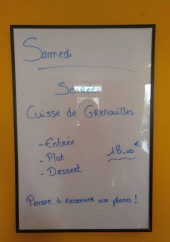 Samedi
Soirée
Cuisse de Grenouilles
- Entrée
- Plat 18.00€
- Dessert
Pensez à réserver vos places !